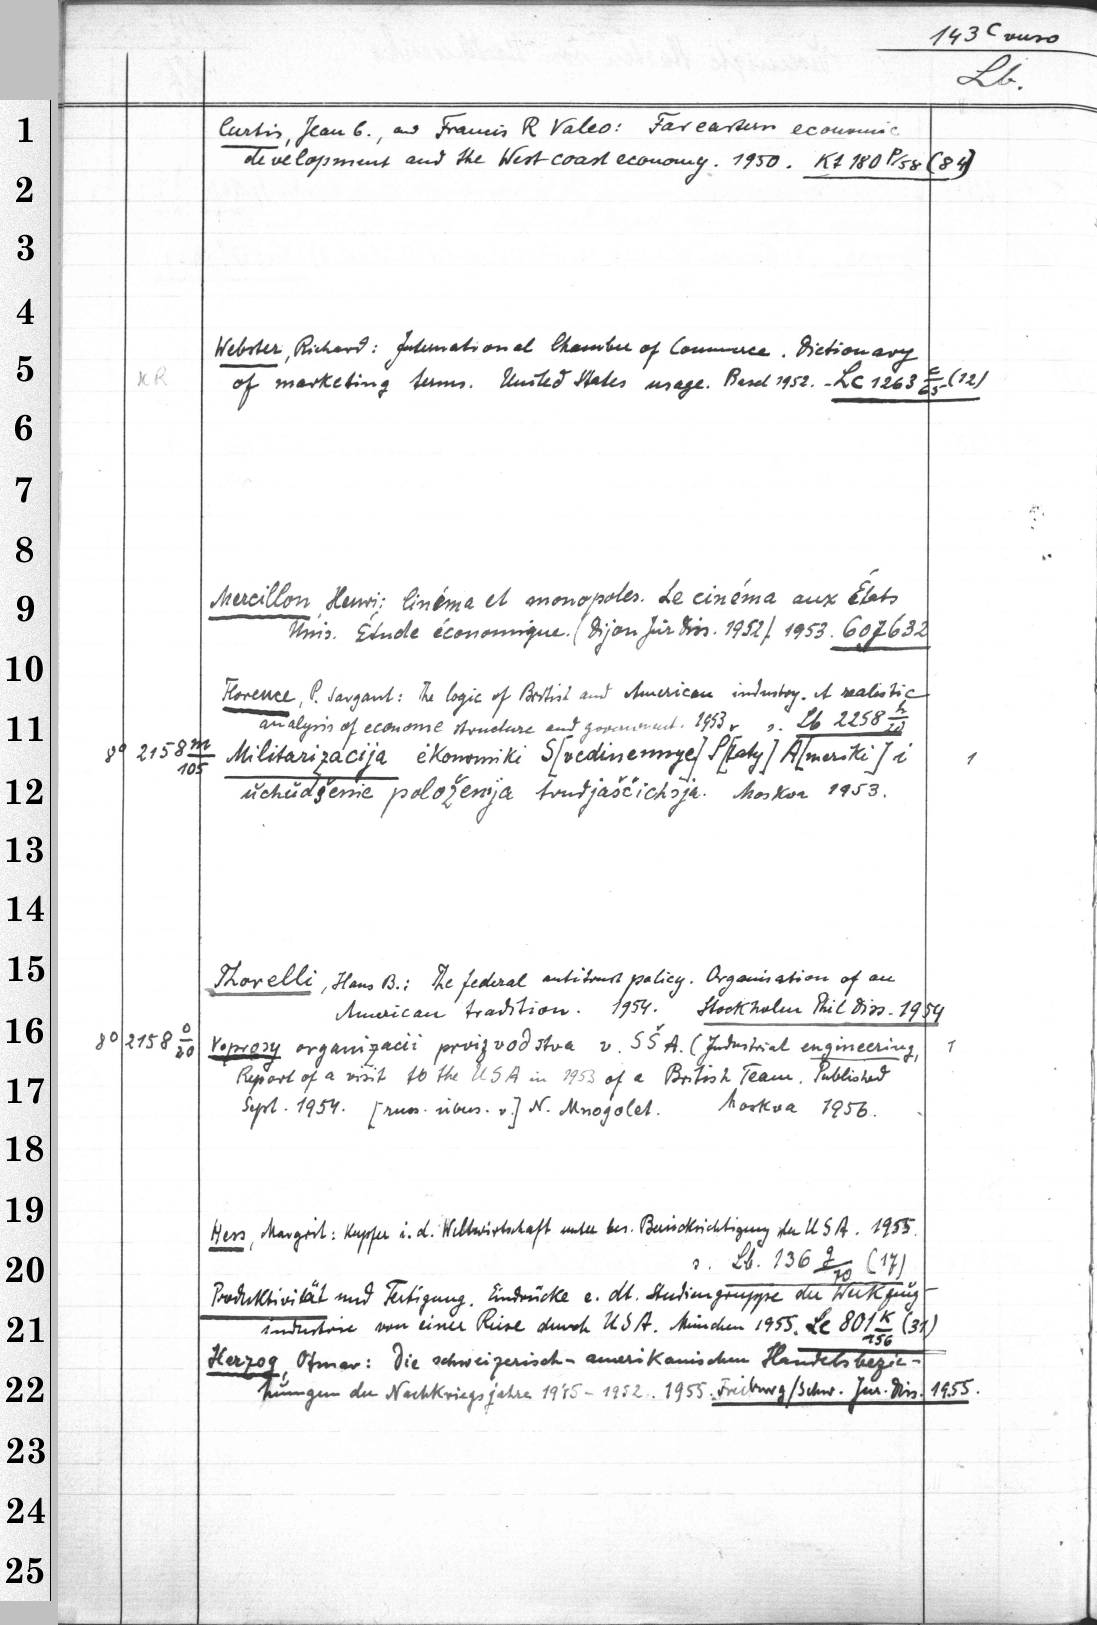 143 c verso
Lb.
1
Curtis, Jean C., and Francis R Valeo: Far eastern economic
development and the West coast economy. 1950. Kt 180 P/58 (84)
2
3
4
Webster, Richard: International Chamber of Commerce. Dictionary
5
KR
of marketing terms. United States usage. Basel 1952. - Lc 1263 c/65 (12)
6
7
8
9
Mercillon, Henri: Cinéma et monopoles. Le cinéma aux États
Unis. Étude économique. (Dijon Jur Diss. 1952) 1953. 607632
10
Florence, P. Sargant: The logic of British and American industry. A realistic
analysis of economic structure and government. 1953. s. Lb 2258 h/20
11
8° 2158 m/105 Militarizacija ėkonomiki S[oedinennye] Š[taty] A[meriki] i 1
12
uchudšenie položenija trudjaščichsja. Moskva 1953.
13
14
15
Thorelli, Hans B.: The federal antitrust policy. Organisation of an
American tradition. 1954. Stockholm Phil Diss. 1954
16
8° 2158 o/20 Voprosy organizacii proizvodstva v. SŠA. (Industrial engineering, 1
Report of a visit to the USA in 1953 of a British Team. Published
17
Sept. 1954. [russ. übers. v.] N. Mnogolet. Moskva 1956.
18
19
Hess, Margrit: Kupfer i. d. Weltwirtschaft unter bes. Berücksichtigung der USA. 1955.
20
s. Lb. 136 g/70 (17)
Produktivität und Fertigung. Eindrücke e. dt. Studiengruppe der Werkzeug-
21
industrie von einer Reise durch USA. München 1955. Lc 801 K/156 (31)
Herzog, Otmar: Die schweizerisch-amerikanischen Handelsbezie-
22
hungen der Nachkriegsjahre 1945 - 1952. 1955. Freiburg/Schw. Jur. Diss. 1955.
23
24
25